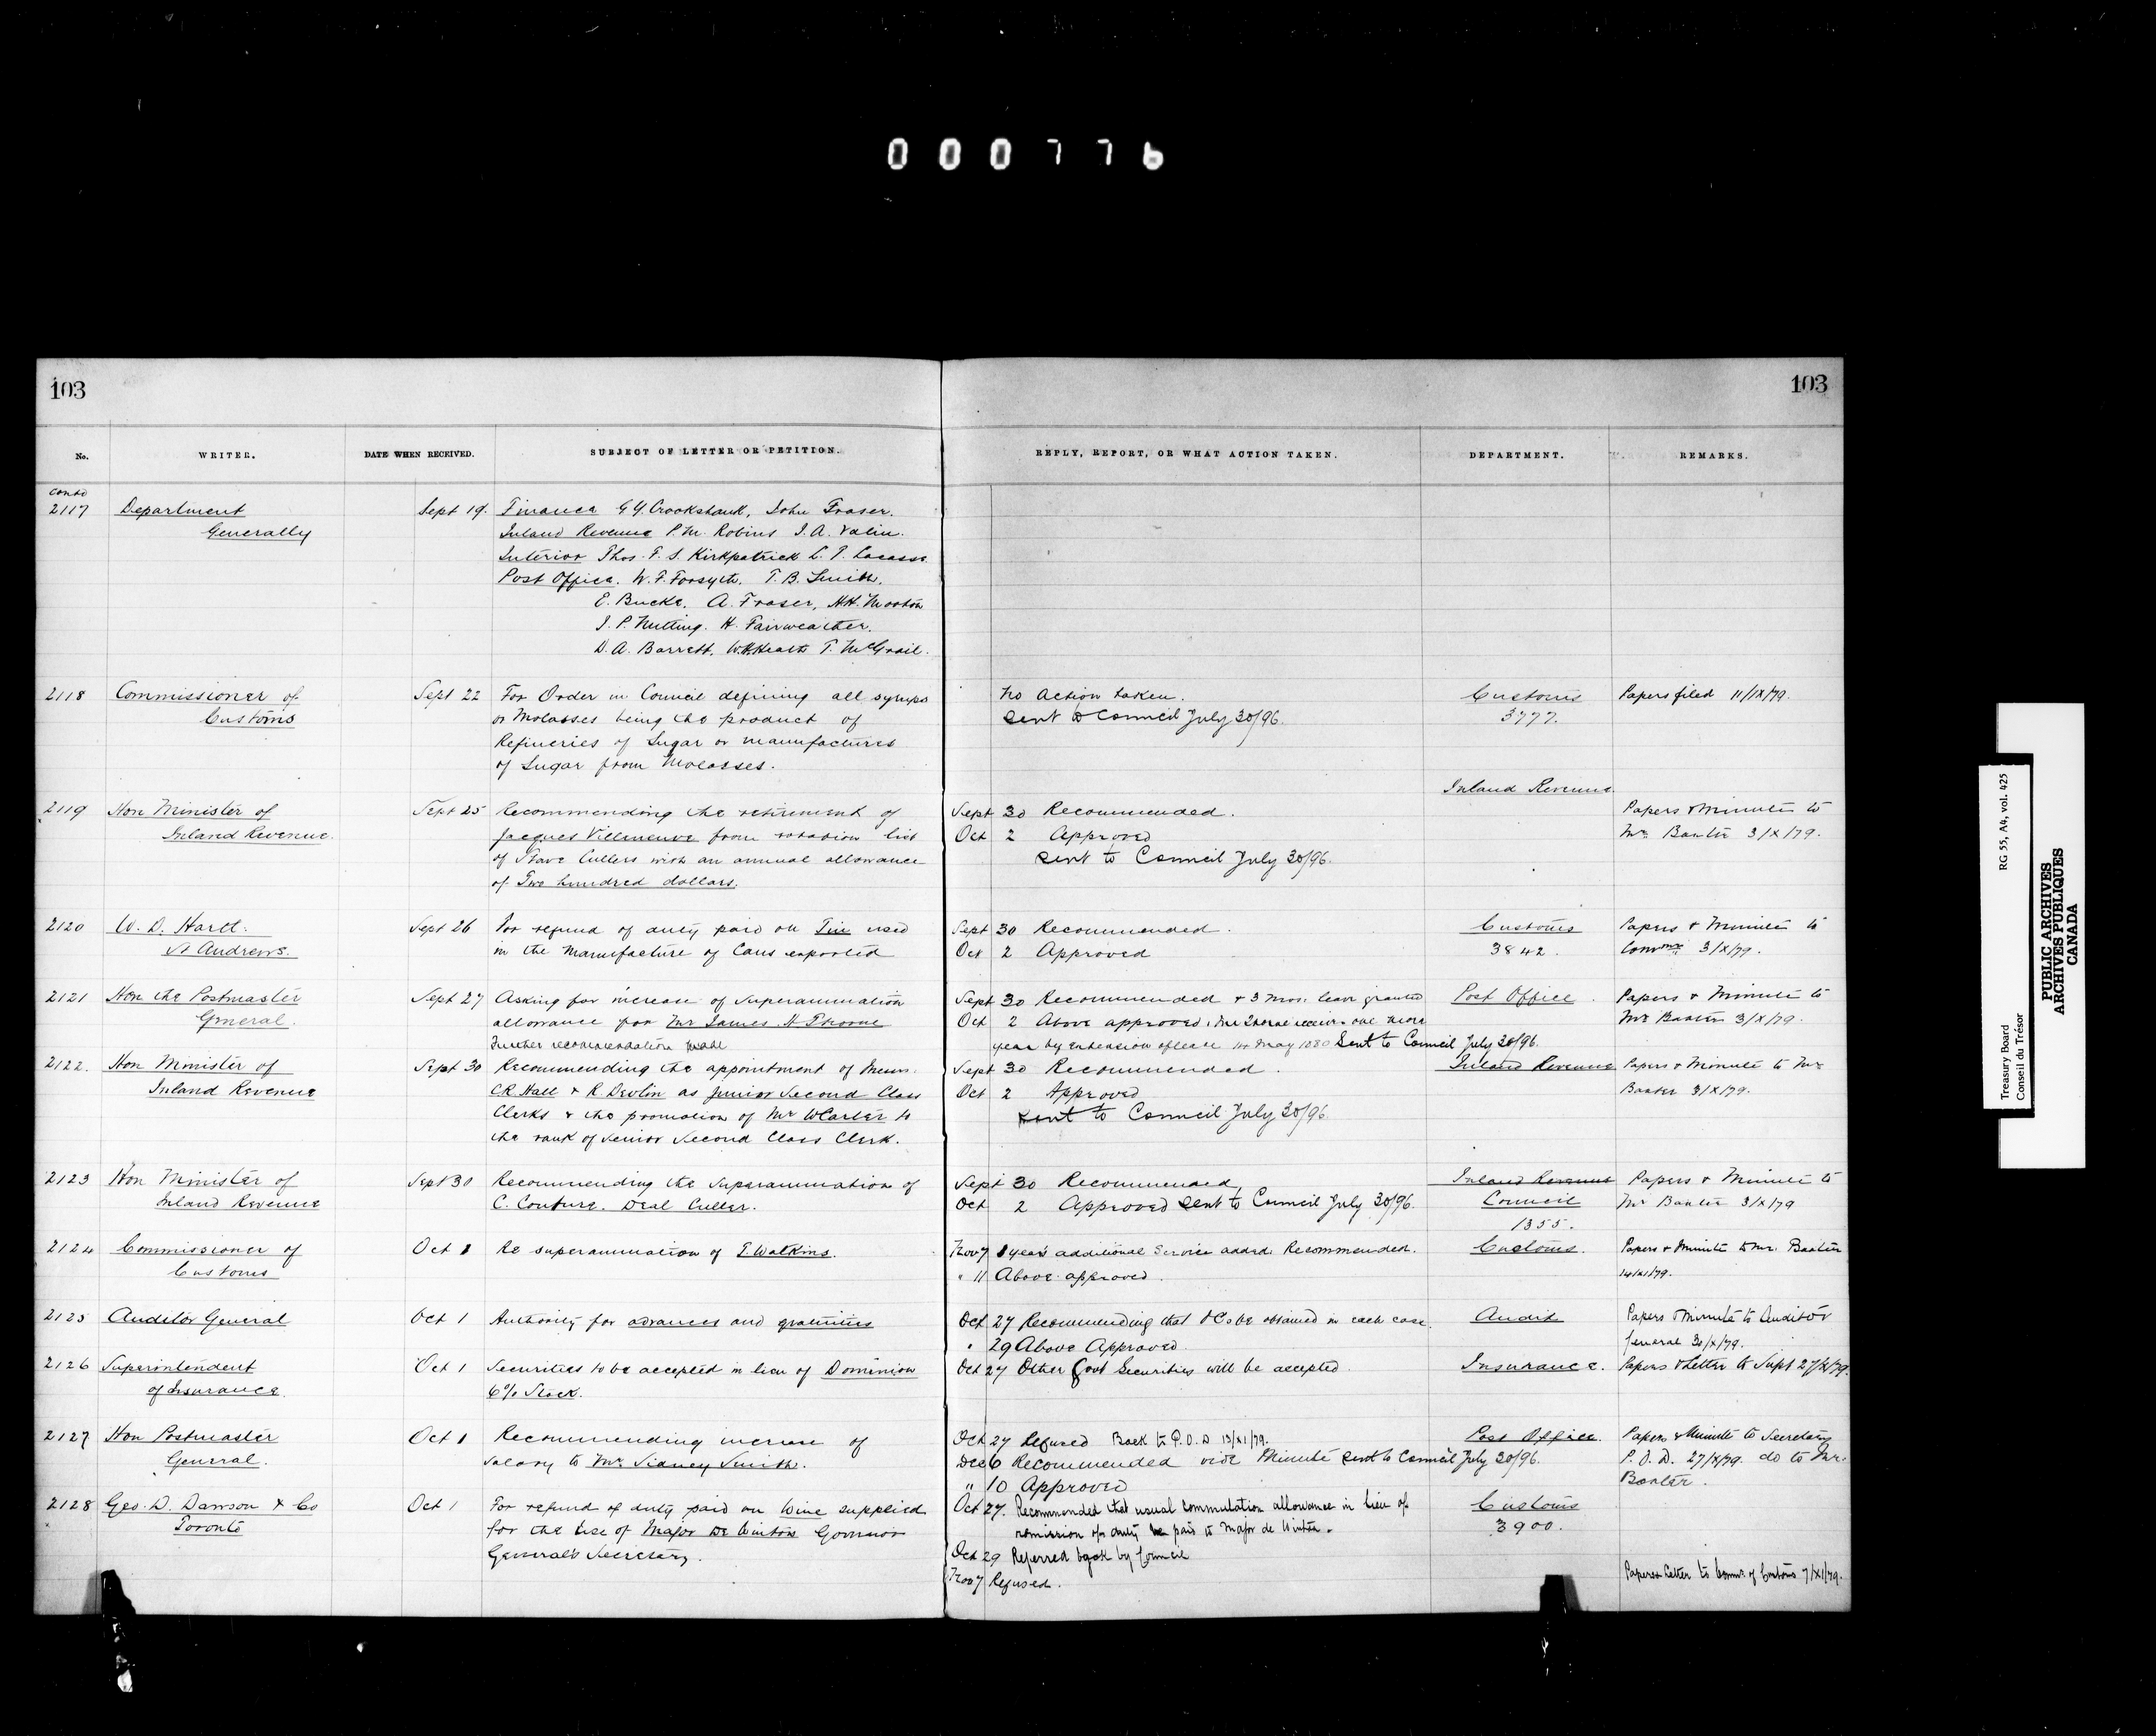 000776
103
103
No. WRITER. DATE WHEN RECEIVED. SUBJECT OF LETTER OR PETITION. REPLY, REPORT, OR WHAT ACTION TAKEN. DEPARTMENT. REMARKS.
contd
2117 Department Sept 19. Finance G Y. Crookshank, John Fraser.
Generally Inland Revenue P. M. Robins J. A. Valin.
Interior Thos. F. S. Kirkpatrick L. T. Lacasse
Post Office. W. F. Forsyth. T. B. Smith.
E. Bucke. A. Fraser, H.H. Morton
J. P. Nutting. H. Fairweather.
D. A. Barrett. W.H. Heath T. McGrail.
2118 Commissioner of Sept 22 For Order in Council defining all syrups No Action taken. Customs Papers filed 11/IX/79.
Customs or Molasses being the product of Sent to Council July 30/96. 3777.
Refineries of Sugar or manufactures
of Sugar from Molasses.
Inland Revenue
2119 Hon Minister of Sept 25 Recommending the retirement of Sept 30 Recommended. Papers & Minute to
Inland Revenue. Jacques Villeneuve from rotation list Oct 2 Approved Mr. Baxter 3/X/79.
of Stave Cullers with an annual allowance Sent to Council July 30/96.
of Two hundred dollars.
2120 W. D. Hartt. Sept 26 For refund of duty paid on Tin used Sept 30 Recommended. Customs Papers & Minute to
St Andrews. in the Manufacture of Cans exported Oct 2 Approved 3842. 3/X/79.
2121 Hon the Postmaster Sept 27 Asking for increase of Superannuation Sept 30 Recommended & 3 mos. leave granted Post Office. Papers & Minute to
General. allowance for Mr James H Thorne Oct 2 Above approved. one more Mr Baxter 3/X/79.
Further recommendation made year by extension of leave May 1880 Sent to Council July 30/96.
2122. Hon Minister of Sept 30 Recommending the appointment of Messrs. Sept 30 Recommended. Inland Revenue Papers & Minute to Mr
Inland Revenue C.R. Hall & R. Devlin as Junior Second Class Oct 2 Approved Baxter 3/X/79.
Clerks & the promotion of Mr W Carter to Sent to Council July 30/96.
the rank of Senior Second Class Clerk.
2123 Hon Minister of Sept 30 Recommending the Superannuation of Sept 30 Recommended Inland Revenue Papers & Minute to
Inland Revenue C. Couture. Deal Culler. Oct 2 Approved Sent to Council July 30/96. Council Mr Baxter 3/X/79
1355.
2124 Commissioner of Oct 1 Re superannuation of T. Watkins. Nov 7 1 years additional Service added. Recommended. Customs. Papers & Minute to Mr. Baxter
Customs " 11 Above approved. 14/XI/79.
2125 Auditor General Oct 1 Authority for advances and gratuities Oct 27 Recommending that OC be obtained in each case. Audit Papers & Minute to Auditor
" 29 Above Approved. General 30/X/79.
2126 Superintendent Oct 1 Securities to be accepted in lieu of Dominion Oct 27 Other Govt Securities will be accepted. Insurance. Papers & Letter to Supt 27/X/79.
of Insurance. 6% Stock.
2127 Hon Postmaster Oct 1 Recommending increase of Oct 27 Refused Back to P.O.D 13/XI/79. Post Office. Papers & Minute to Secretary
General. Salary to Mr Sidney Smith. Dec 6 Recommended vide Minute Sent to Council July 30/96. P.O.D. 27/X/79. do to Mr.
" 10 Approved Baxter.
2128 Geo. D. Dawson & Co Oct 1 For refund of duty paid on Wine supplied Oct 27. Recommended that usual commutation allowance in lieu of Customs
Toronto for the use of Major De Winton Governor remission of duty be paid to Major de Winton. 3900.
General's Secretary. Oct 29 Referred back by Council
Nov 7 Refused. Papers & Letter to Commr. of Customs 7/XI/79.
RG 55, A4, vol. 425
Treasury Board
Conseil du Trésor
PUBLIC ARCHIVES
ARCHIVES PUBLIQUES
CANADA